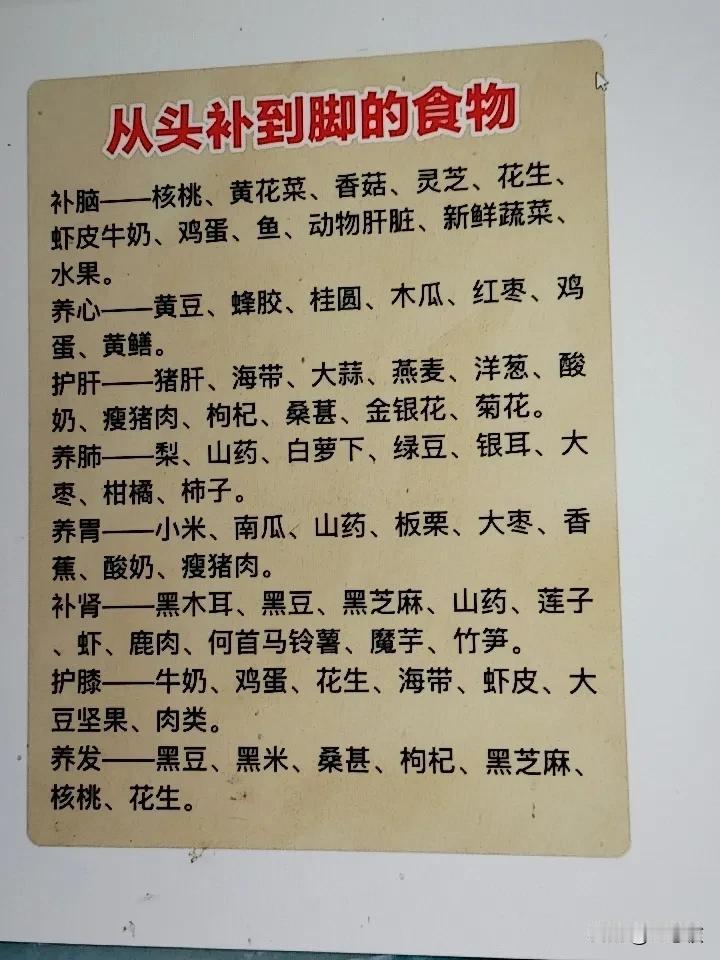 从头补到脚的食物
补脑——核桃、黄花菜、香菇、灵芝、花生、
虾皮牛奶、鸡蛋、鱼、动物肝脏、新鲜蔬菜、
水果。
养心——黄豆、蜂胶、桂圆、木瓜、红枣、鸡
蛋、黄鳝。
护肝——猪肝、海带、大蒜、燕麦、洋葱、酸
奶、瘦猪肉、枸杞、桑葚、金银花、菊花。
养肺——梨、山药、白萝下、绿豆、银耳、大
枣、柑橘、柿子。
养胃——小米、南瓜、山药、板栗、大枣、香
蕉、酸奶、瘦猪肉。
补肾——黑木耳、黑豆、黑芝麻、山药、莲子
、虾、鹿肉、何首马铃薯、魔芋、竹笋。
护膝——牛奶、鸡蛋、花生、海带、虾皮、大
豆坚果、肉类。
养发——黑豆、黑米、桑甚、枸杞、黑芝麻、
核桃、花生。